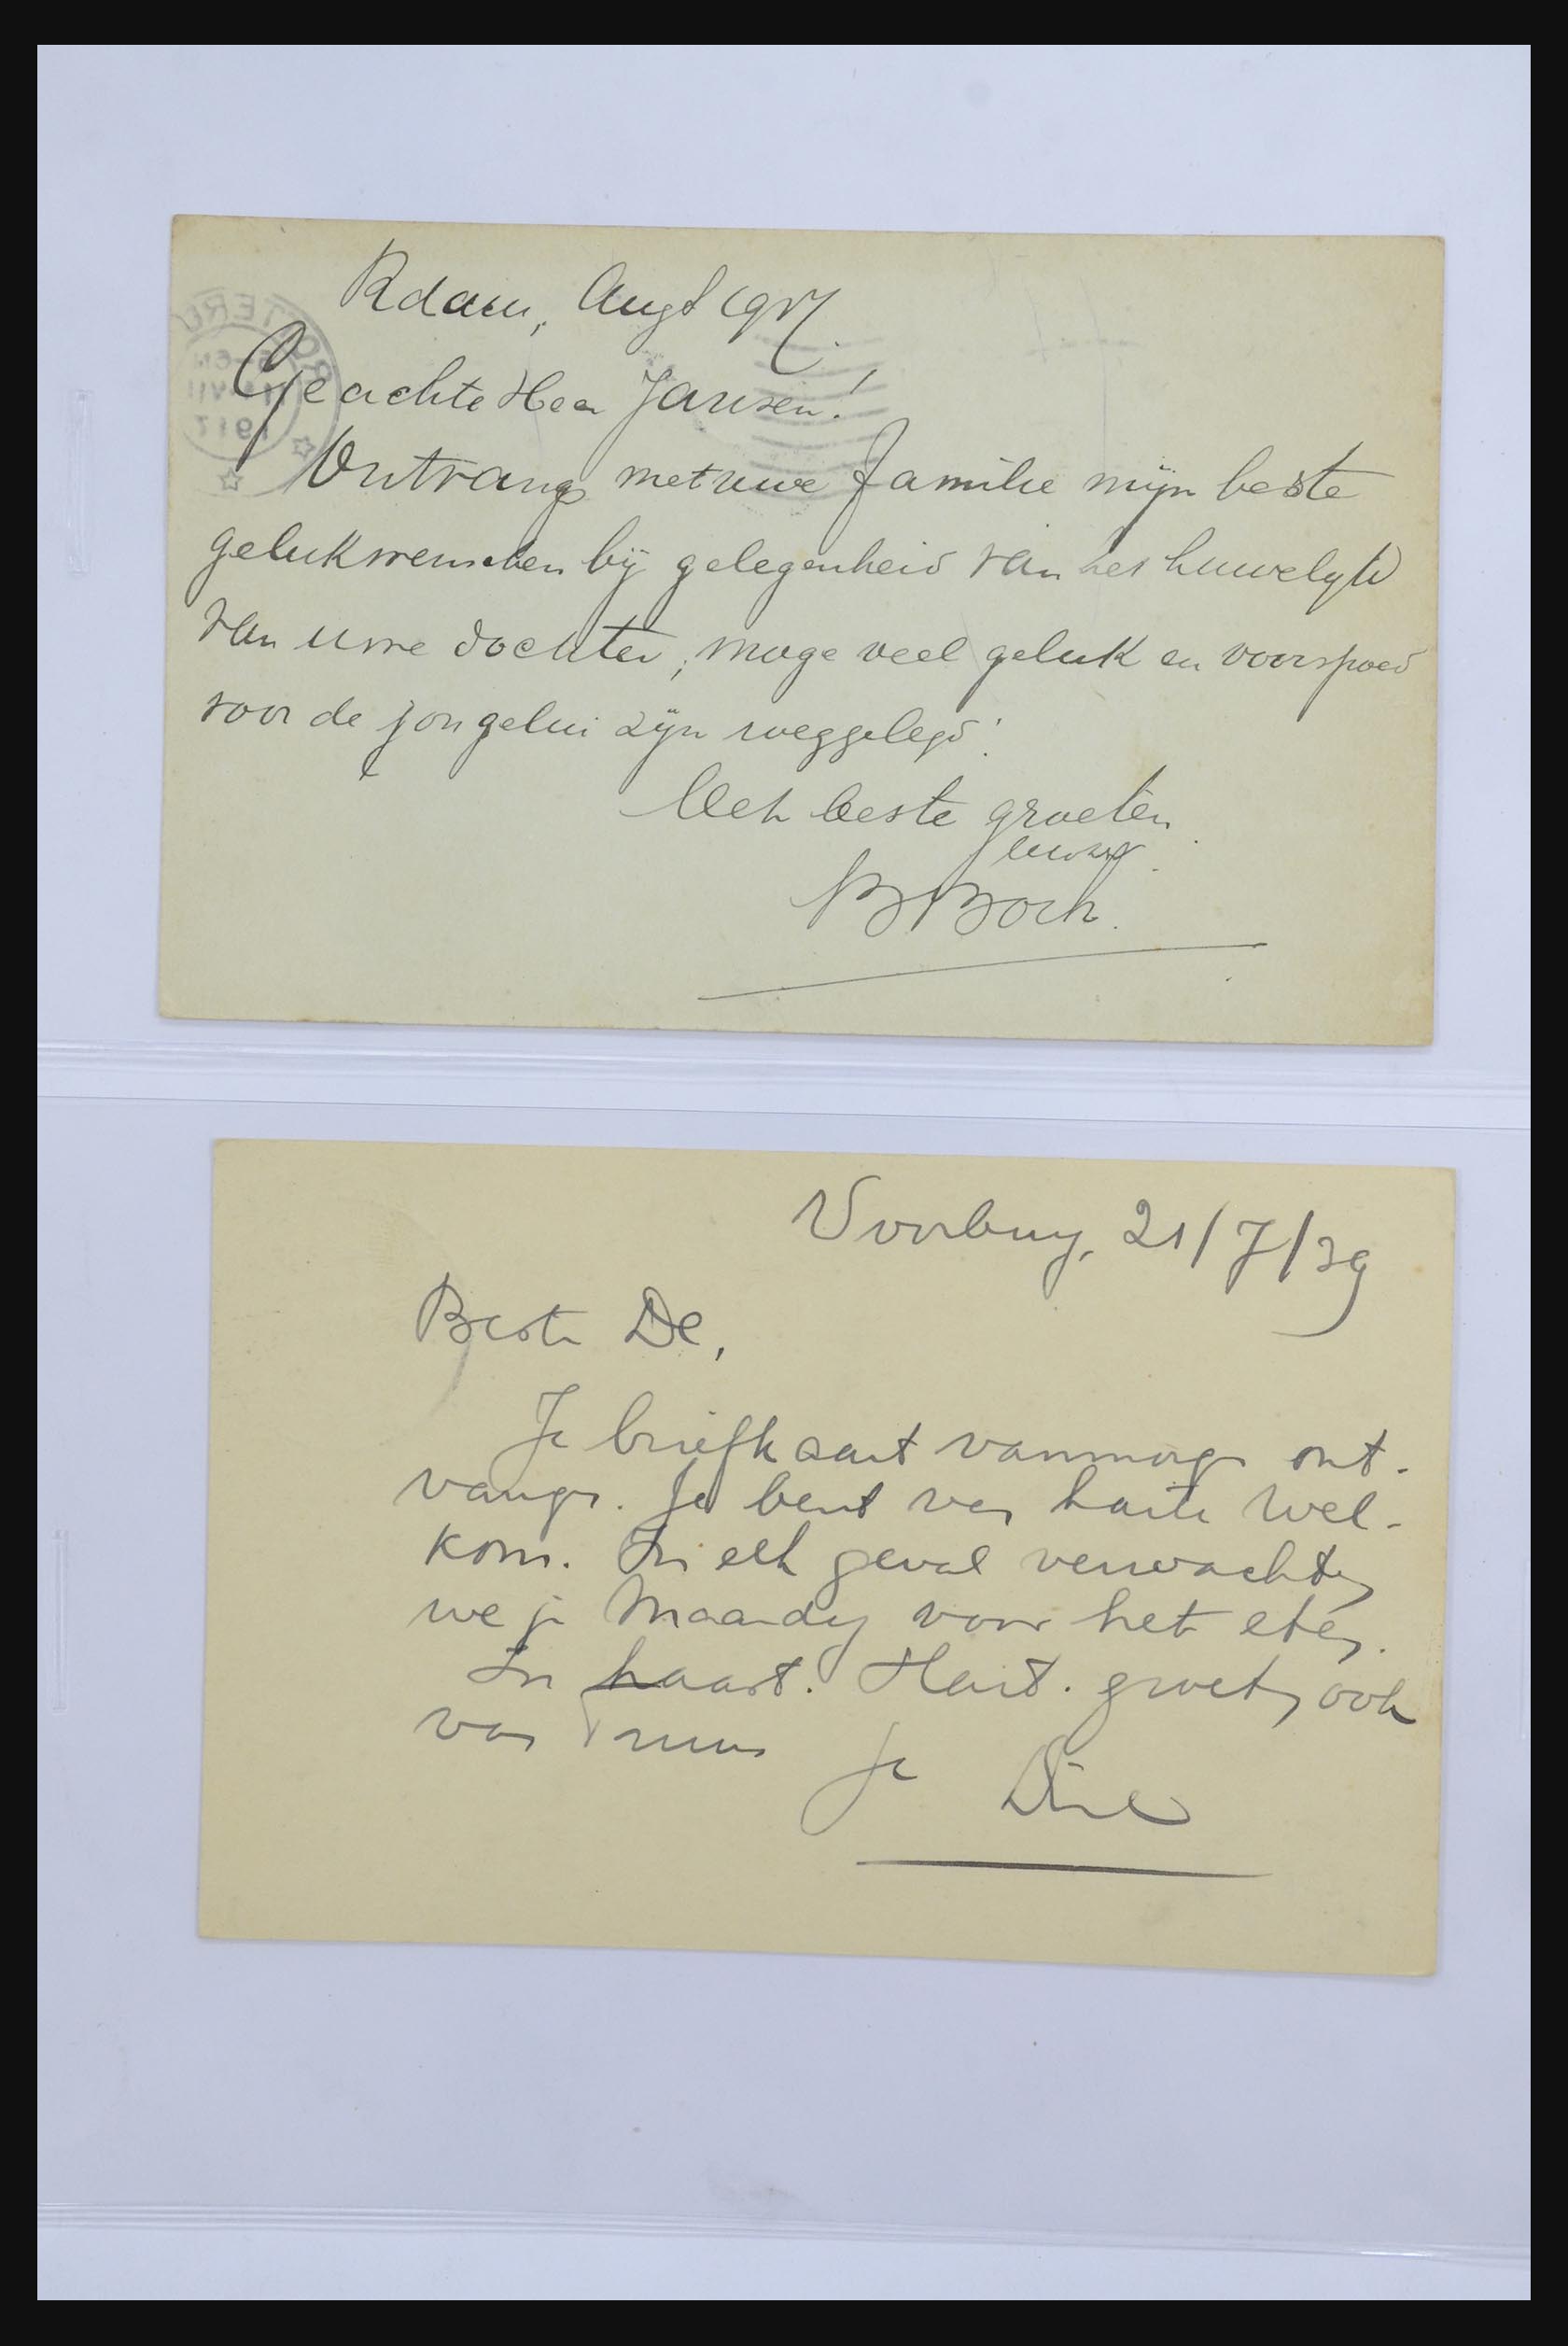 Rdam, Augt 1917.
Geachte Heer Jansen!
Ontvang met uwe familie mijn beste
gelukwenschen bij gelegenheid van het huwelijk
van uwe dochter, moge veel geluk en voorspoed
voor de jongelui zijn weggelegd.
Met beste groeten
B Boch.
Voorburg, 21/7/39
Beste De,
Je briefkaart vanmorgen ont-
vangen. Je bent van harte wel-
kom. In elk geval verwachten
we je Maandag voor het eten.
In haast. Hart. groeten, ook
van Truus
Je Dirk